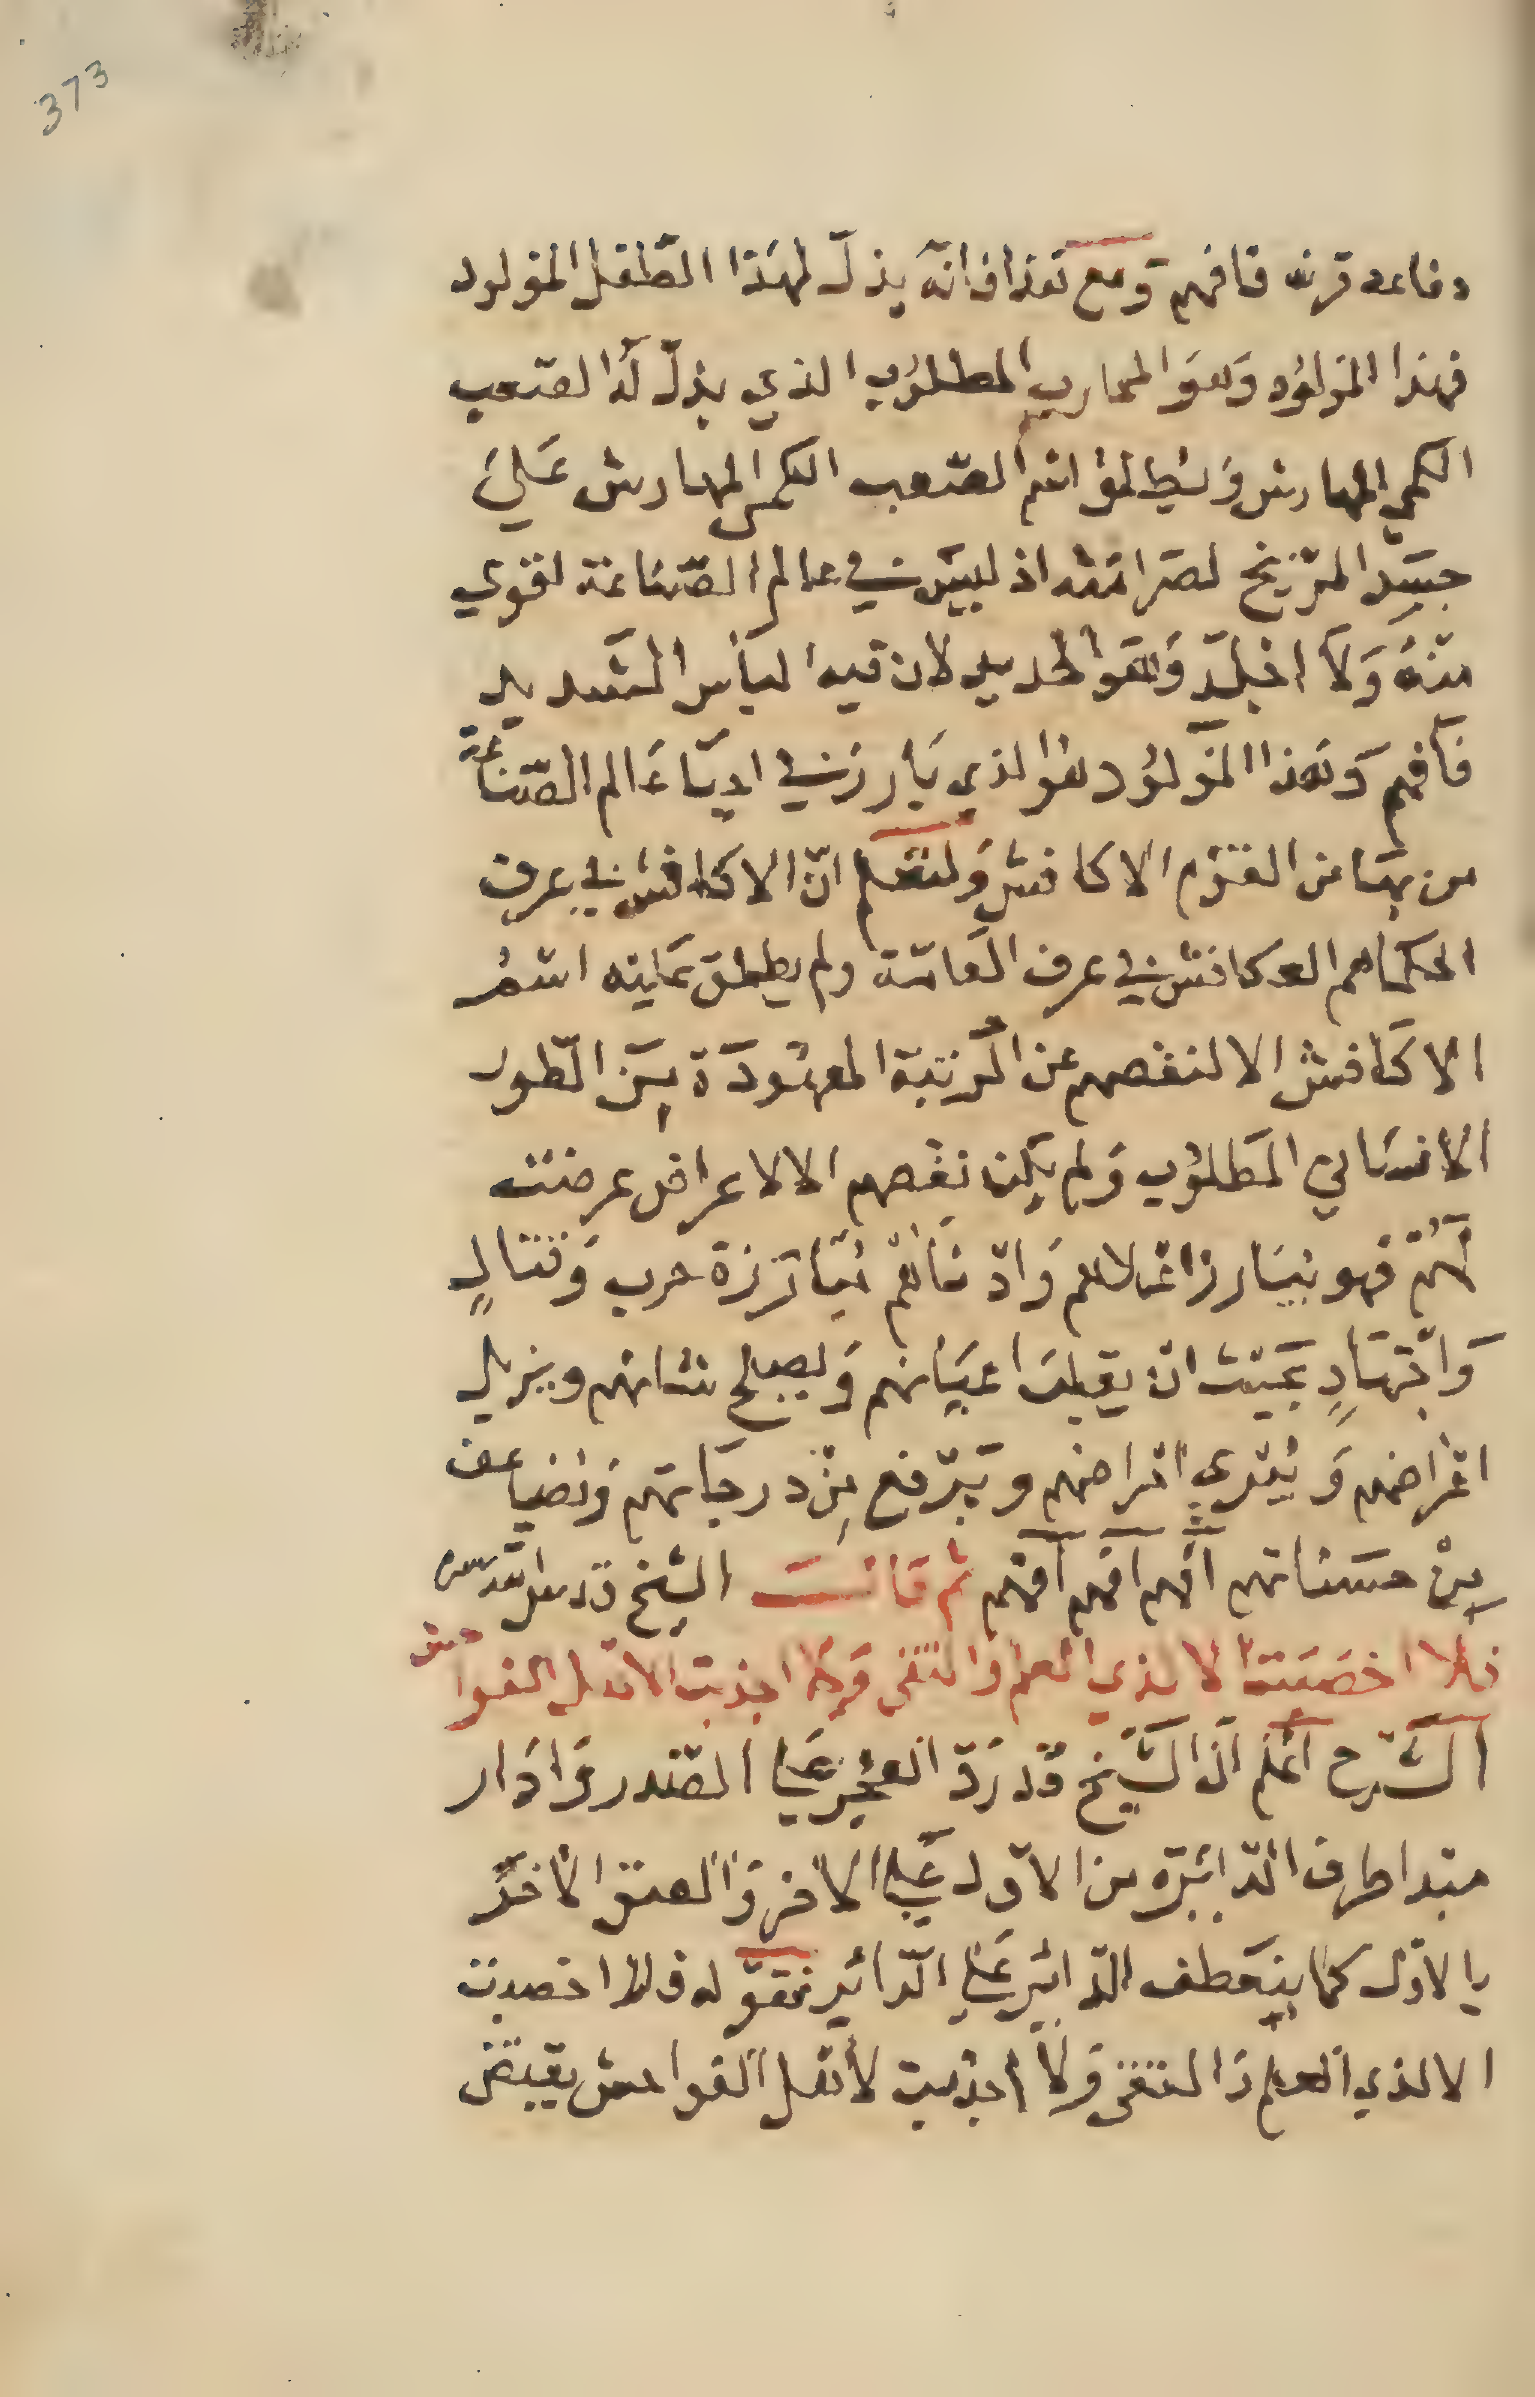 373
دفاعه قرنه فافهم ومع هذا فانه يذلّ لهذا الطّفل المولود
فهذا المولود وهو المحارب المطلوب الذي يذلّ له الصّعب
الكمي المهارش ويطلقوا اسم الصّعب الكمي المهارش على
جسد المرّيخ لصرامته اذ ليس في عالم الصّناعة اقوى
منه ولا اجلد وهو الحديد لان فيه الباس الشديد
فافهم وهذا المولود هو الذي يبارز في ادنا عالم الصّناعة
من بها من القزم الاكافش ولتعلم انّ الاكافش في عرف
الحكما هم العكافش في عرف العامّة ولم يطلق عليه اسم
الاكافش الا لنقصهم عن المرتبة المعهودة بين الطور
الانساني المطلوب ولم يكن نقصهم الا لاعراض عرضت
لهم فهو يبارز اعلاهم وادناهم مبارزة حرب وقتال
واجتهاد بحيث ان يقلب اعيانهم ويصلح شانهم ويزيل
اعراضهم ويبري امراضهم ويرفع من درجاتهم ويضاعف
من حسناتهم افهم افهم افهم ثم قال الشيخ قدس الله سره
فلا اخصبت الا لذي العلم والتقى ولا اجذبت الا لاهل الفواحش
الشرح اعلم انّ الشّيخ قد ردّ العجز على الصّدر وادار
مبدا طرف الدّائرة من الاول على الاخر والصق الاخر
بالاول كما ينعطف الدّائر على الدّائر فقوله فلا اخصبت
الا لذي العلم والتقى ولا اجذبت لاهل الفواحش يقتضى